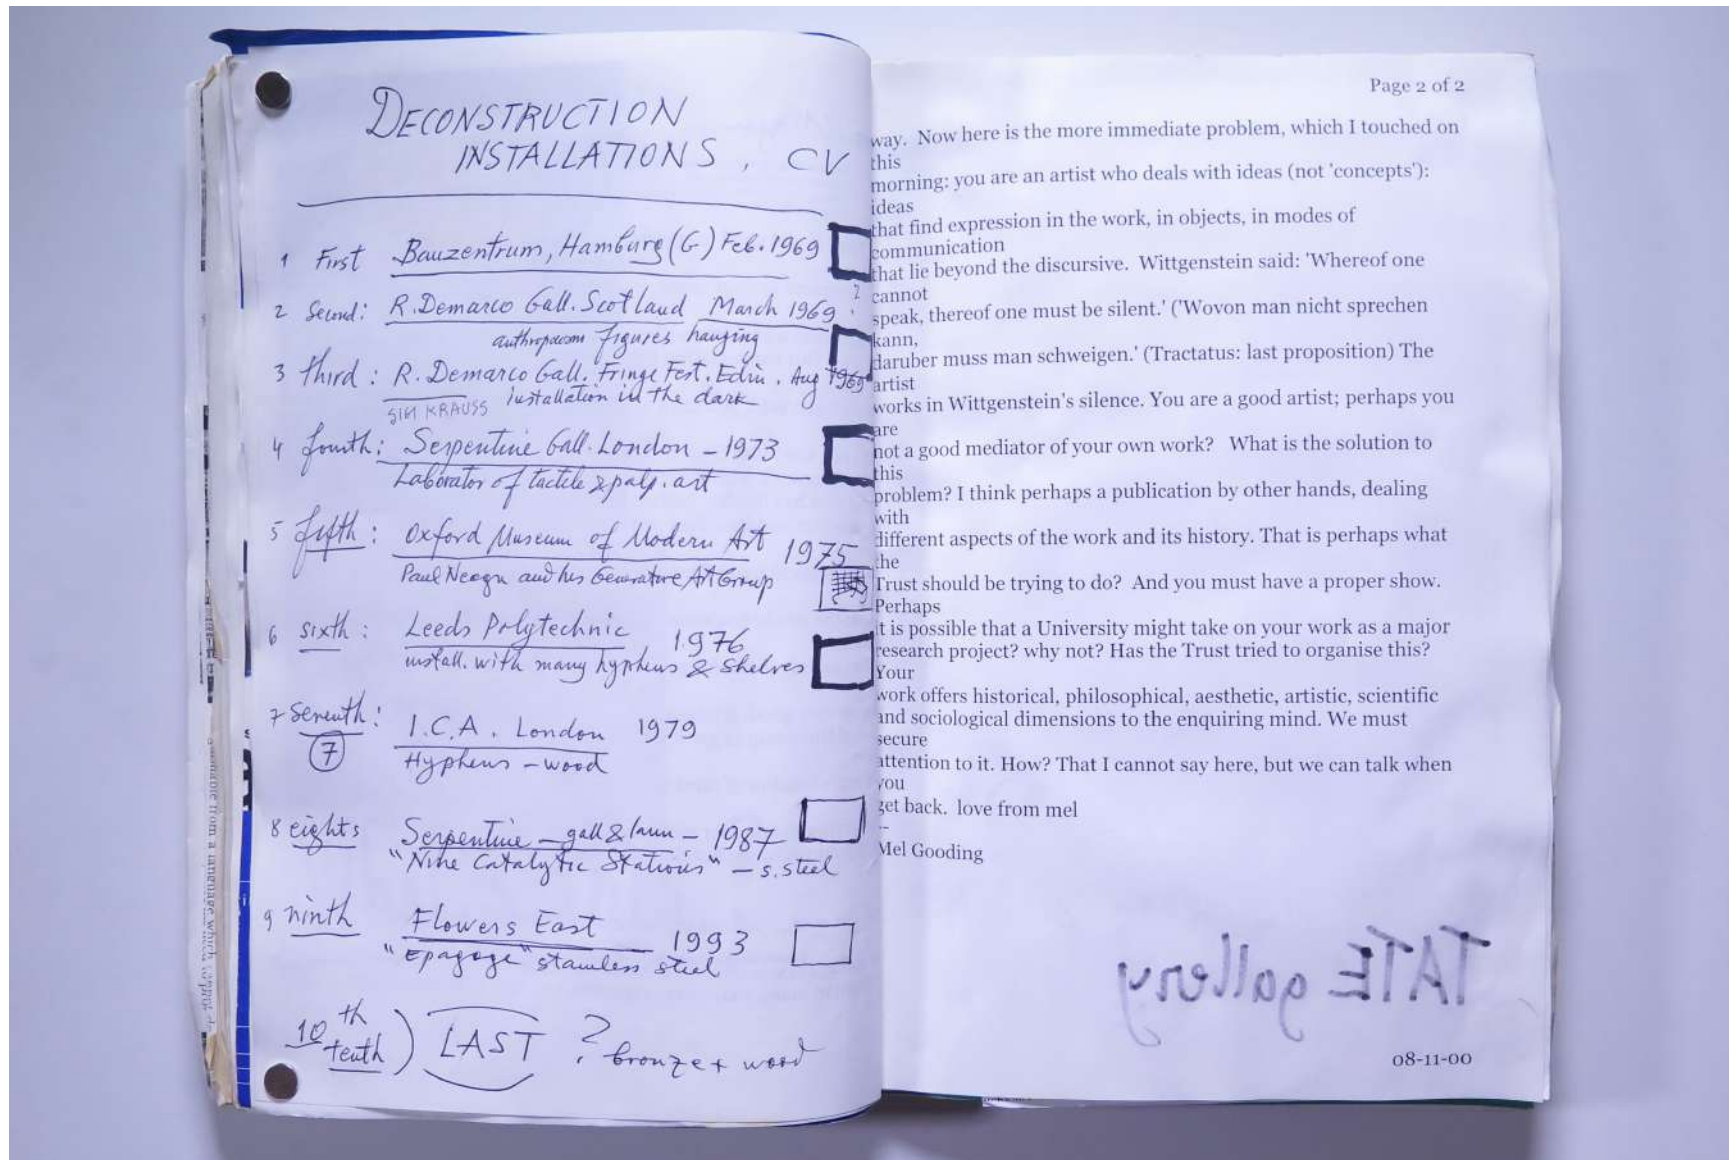 DECONSTRUCTION
INSTALLATIONS, CV
1 First Bauzentrum, Hamburg (G) Feb. 1969
2 Second: R. Demarco Gall. Scotland March 1969 ?
anthropocosm figures hanging
3 third: R. Demarco Gall. Fringe Fest. Edin. Aug 1969
installation in the dark
KRAUSS
4 fourth: Serpentine Gall. London – 1973
Laborator of tactile & palp. art
5 fifth: Oxford Museum of Modern Art 1975
Paul Neagu and his Generative Art Group
6 sixth: Leeds Polytechnic 1976
install. with many hyphens & shelves
7 seventh: I.C.A. London 1979
7 Hyphens – wood
8 eights Serpentine – gall & lawn – 1987
"Nine Catalytic Stations" – s. steel
9 ninth Flowers East 1993
"Epagoge" stainless steel
10th tenth) LAST ? bronze + wood
Page 2 of 2
way. Now here is the more immediate problem, which I touched on
this
morning: you are an artist who deals with ideas (not 'concepts'):
ideas
that find expression in the work, in objects, in modes of
communication
that lie beyond the discursive. Wittgenstein said: 'Whereof one
cannot
speak, thereof one must be silent.' ('Wovon man nicht sprechen
kann,
daruber muss man schweigen.' (Tractatus: last proposition) The
artist
works in Wittgenstein's silence. You are a good artist; perhaps you
are
not a good mediator of your own work? What is the solution to
this
problem? I think perhaps a publication by other hands, dealing
with
different aspects of the work and its history. That is perhaps what
the
Trust should be trying to do? And you must have a proper show.
Perhaps
it is possible that a University might take on your work as a major
research project? why not? Has the Trust tried to organise this?
Your
work offers historical, philosophical, aesthetic, artistic, scientific
and sociological dimensions to the enquiring mind. We must
secure
attention to it. How? That I cannot say here, but we can talk when
you
get back. love from mel
--
Mel Gooding
TATE gallery
08-11-00